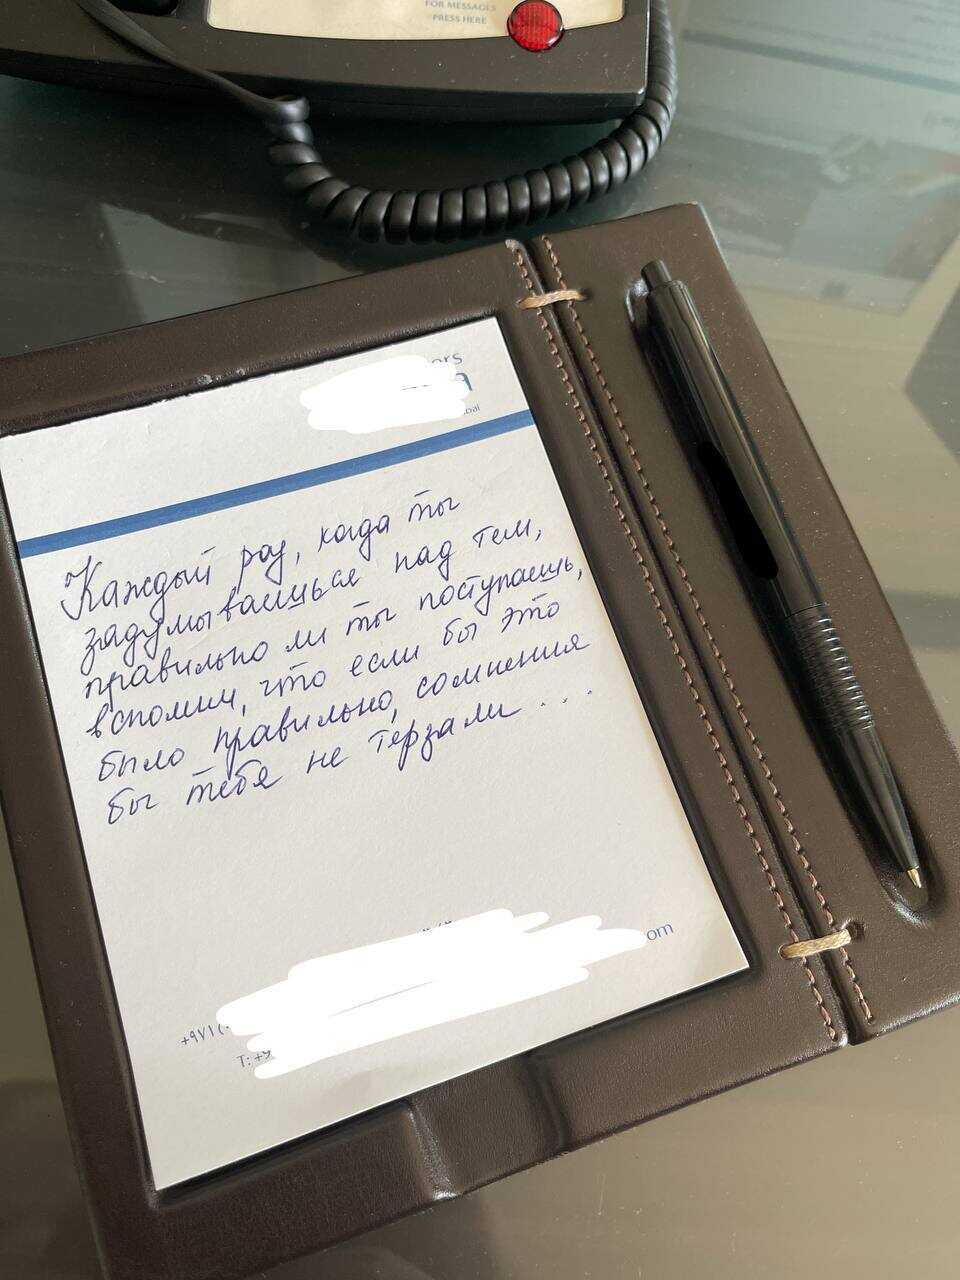 FOR MESSAGES
PRESS HERE
Каждый раз, когда ты
задумываешься над тем,
правильно ли ты поступаешь,
вспомни, что если бы это
было правильно, сомнения
бы тебя не терзали...
om
+٩٧١ (
T: +9